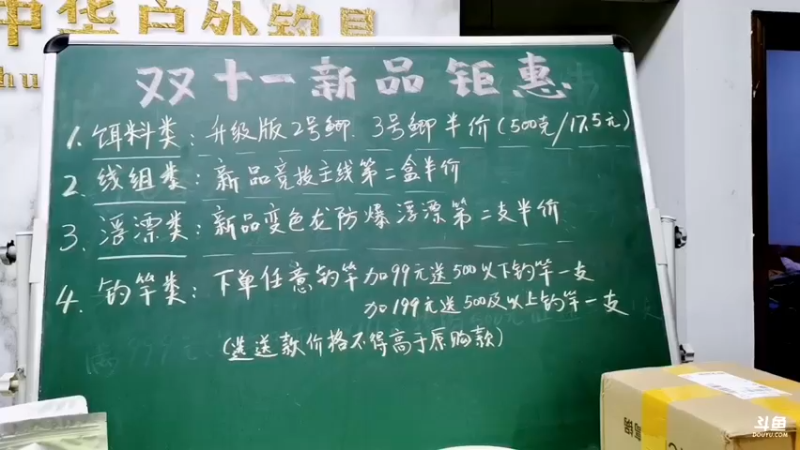 中华户外钓具
hu
双十一新品钜惠
1. 饵料类：升级版2号鲫. 3号鲫半价(500克/17.5元)
2. 线组类：新品竞技主线第二盒半价
3. 浮漂类：新品变色龙防爆浮漂第二支半价
4. 钓竿类：下单任意钓竿加99元送500以下钓竿一支
加199元送500及以上钓竿一支
(选送款价格不得高于原购款)
斗鱼
DOUYU.COM